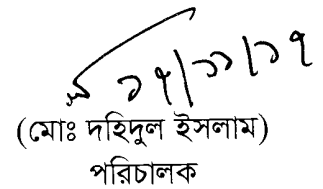 ১৭/১১/১৭
(মোঃ দহিদুল ইসলাম)
পরিচালক